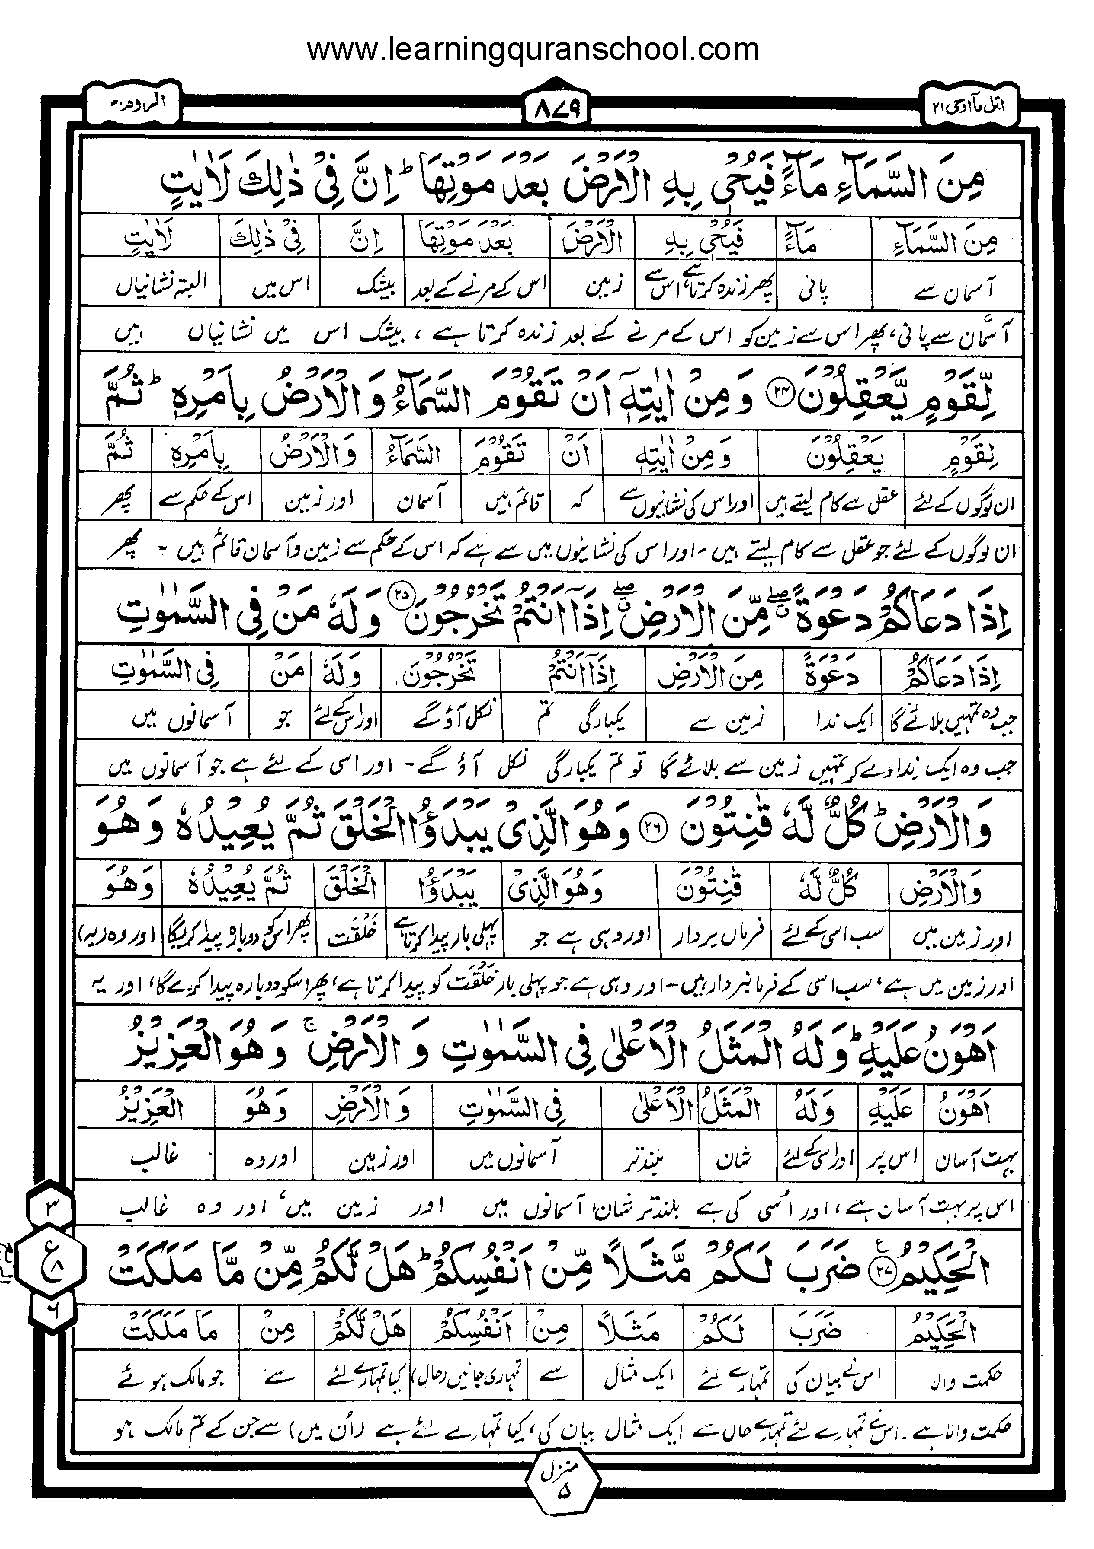 www.learningquranschool.com
اتل مآ اوحی ۲۱
۸۷۹
الروم ۳۰
مِنَ السَّمَآءِ مَآءً فَيُحْىٖ بِهِ الْاَرْضَ بَعْدَ مَوْتِهَا ؕ اِنَّ فِىْ ذٰلِكَ لَاٰيٰتٍ
مِنَ السَّمَآءِ مَآءً فَيُحْىٖ بِهِ الْاَرْضَ بَعْدَ مَوْتِهَا اِنَّ فِىْ ذٰلِكَ لَاٰيٰتٍ
آسمان سے پانی پھر زندہ کرتا ہے اس سے زمین اس کے مرنے کے بعد بیشک اس میں البتہ نشانیاں
آسمان سے پانی، پھر اس سے زمین کو اس کے مرنے کے بعد زندہ کرتا ہے، بیشک اس میں نشانیاں ہیں
لِّقَوْمٍ يَّعْقِلُوْنَ ۲۴ وَمِنْ اٰيٰتِهٖٓ اَنْ تَقُوْمَ السَّمَآءُ وَالْاَرْضُ بِاَمْرِهٖ ؕ ثُمَّ
لِقَوْمٍ يَعْقِلُوْنَ وَمِنْ اٰيٰتِهٖٓ اَنْ تَقُوْمَ السَّمَآءُ وَالْاَرْضُ بِاَمْرِهٖ ثُمَّ
ان لوگوں کے لئے عقل سے کام لیتے ہیں اور اس کی نشانیوں سے کہ قائم ہیں آسمان اور زمین اس کے حکم سے پھر
ان لوگوں کے لئے جو عقل سے کام لیتے ہیں - اور اس کی نشانیوں میں سے ہے کہ اس کے حکم سے زمین و آسمان قائم ہیں - پھر
اِذَا دَعَاكُمْ دَعْوَةً ۖ مِّنَ الْاَرْضِ ۖ اِذَآ اَنْتُمْ تَخْرُجُوْنَ ۲۵ وَلَهٗ مَنْ فِى السَّمٰوٰتِ
اِذَا دَعَاكُمْ دَعْوَةً مِنَ الْاَرْضِ اِذَآ اَنْتُمْ تَخْرُجُوْنَ وَلَهٗ مَنْ فِى السَّمٰوٰتِ
جب وہ تمہیں بلائے گا ایک ندا زمین سے یکبارگی تم نکل آؤ گے اور اس کے لئے جو آسمانوں میں
جب وہ ایک ندا دے کر تمہیں زمین سے بلائے گا تو تم یکبارگی نکل آؤ گے - اور اسی کے لئے ہے جو آسمانوں میں
وَالْاَرْضِ ؕ كُلٌّ لَّهٗ قٰنِتُوْنَ ۲۶ وَهُوَ الَّذِىْ يَبْدَؤُا الْخَلْقَ ثُمَّ يُعِيْدُهٗ وَهُوَ
وَالْاَرْضِ كُلٌّ لَّهٗ قٰنِتُوْنَ وَهُوَ الَّذِىْ يَبْدَؤُا الْخَلْقَ ثُمَّ يُعِيْدُهٗ وَهُوَ
اور زمین میں سب اسی کے لئے فرماں بردار اور وہی ہے جو پہلی بار پیدا کرتا ہے خَلْقَت پھر اس کو دوبارہ پیدا کریگا اور وہ (یہ)
اور زمین میں ہے، سب اسی کے فرمانبردار ہیں - اور وہی ہے جو پہلی بار خَلْقَت کو پیدا کرتا ہے، پھر اسکو دوبارہ پیدا کرے گا، اور یہ
اَهْوَنُ عَلَيْهِ ؕ وَلَهُ الْمَثَلُ الْاَعْلٰى فِى السَّمٰوٰتِ وَالْاَرْضِ ۚ وَهُوَ الْعَزِيْزُ
اَهْوَنُ عَلَيْهِ وَلَهُ الْمَثَلُ الْاَعْلٰى فِى السَّمٰوٰتِ وَالْاَرْضِ وَهُوَ الْعَزِيْزُ
بہت آسان اس پر اور اسی کے لئے شان بلندتر آسمانوں میں اور زمین اور وہ غالب
اس پر بہت آسان ہے، اور اُسی کی ہے بلندتر شان آسمانوں میں اور زمین میں، اور وہ غالب
الْحَكِيْمُ ۲۷ ضَرَبَ لَكُمْ مَّثَلًا مِّنْ اَنْفُسِكُمْ ؕ هَلْ لَّكُمْ مِّنْ مَّا مَلَكَتْ
الْحَكِيْمُ ضَرَبَ لَكُمْ مَثَلًا مِنْ اَنْفُسِكُمْ هَلْ لَّكُمْ مِنْ مَا مَلَكَتْ
حکمت والا اس نے بیان کی تمہارے لئے ایک مثال سے تمہاری جانیں (حال) کیا تمہارے لئے سے جو مالک ہوئے
حکمت والا ہے۔ اس نے تمہارے لئے تمہارے حال سے ایک مثال بیان کی، کیا تمہارے لئے ہے (اُن میں) سے جن کے تم مالک ہو
۳
ع
۸
۶
منزل
۵